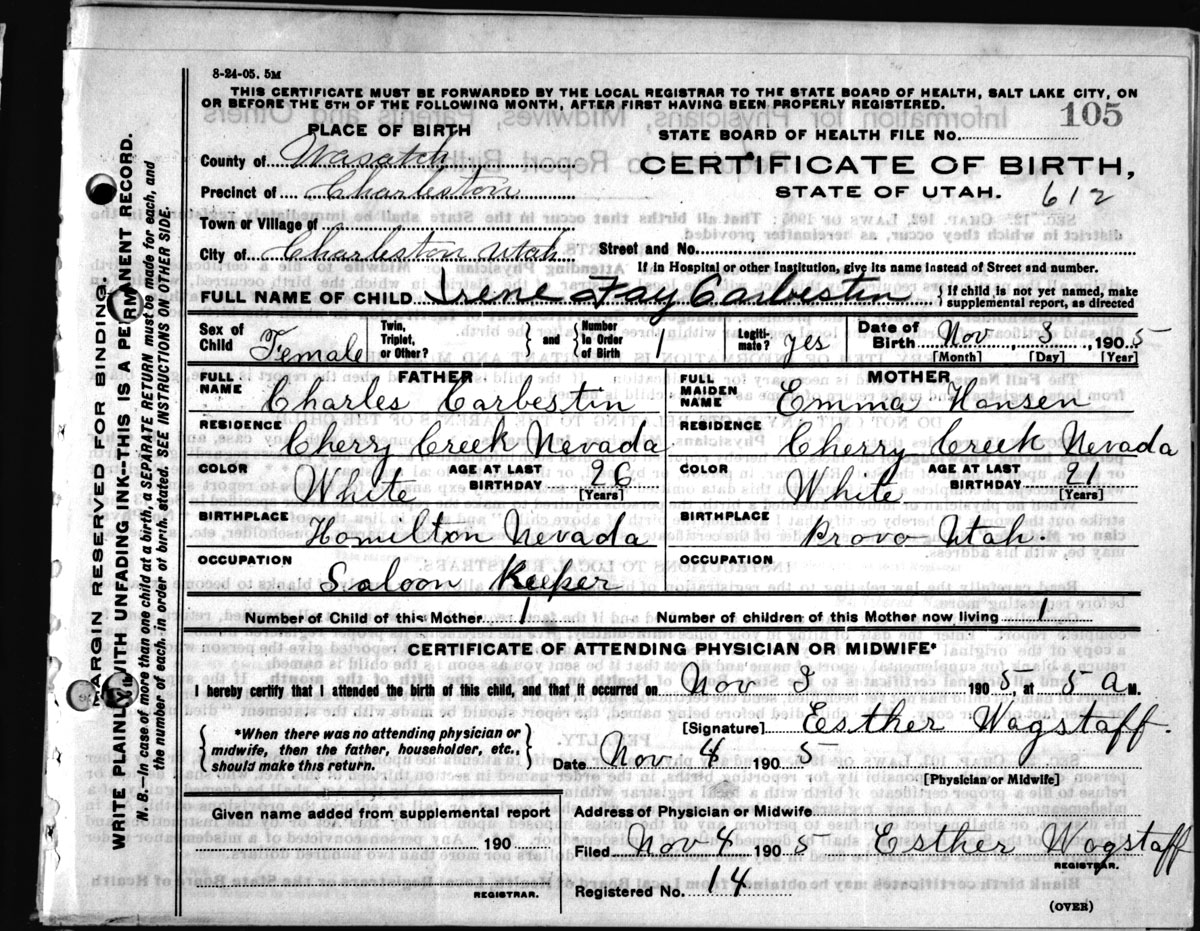 8-24-05. 5M
THIS CERTIFICATE MUST BE FORWARDED BY THE LOCAL REGISTRAR TO THE STATE BOARD OF HEALTH, SALT LAKE CITY, ON
OR BEFORE THE 5TH OF THE FOLLOWING MONTH, AFTER FIRST HAVING BEEN PROPERLY REGISTERED.
105
PLACE OF BIRTH
STATE BOARD OF HEALTH FILE No.
County of Wasatch
CERTIFICATE OF BIRTH,
Precinct of Charleston
STATE OF UTAH. 612
Town or Village of
City of Charleston Utah Street and No.
If in Hospital or other Institution, give its name instead of Street and number.
FULL NAME OF CHILD Irene Fay Carbestin { If child is not yet named, make supplemental report, as directed
Sex of Child Female Twin, Triplet, or Other? } and { Number in Order of Birth 1 Legitimate? yes Date of Birth Nov 3, 1905
[Month] [Day] [Year]
FATHER
MOTHER
FULL NAME Charles Carbestin
FULL MAIDEN NAME Emma Hansen
RESIDENCE Cherry Creek Nevada
RESIDENCE Cherry Creek Nevada
COLOR White AGE AT LAST BIRTHDAY 26 [Years]
COLOR White AGE AT LAST BIRTHDAY 21 [Years]
BIRTHPLACE Homelton Nevada
BIRTHPLACE Provo Utah.
OCCUPATION Saloon Keeper
OCCUPATION
Number of Child of this Mother 1 Number of children of this Mother now living 1
CERTIFICATE OF ATTENDING PHYSICIAN OR MIDWIFE*
I hereby certify that I attended the birth of this child, and that it occurred on Nov 3 1905, at 5 a M.
{ *When there was no attending physician or midwife, then the father, householder, etc., should make this return. }
[Signature] Esther Wagstaff.
Date Nov 4 1905
[Physician or Midwife]
Given name added from supplemental report
190
REGISTRAR.
Address of Physician or Midwife
Filed Nov 4 1905 Esther Wagstaff
REGISTRAR.
Registered No. 14
(OVER)
MARGIN RESERVED FOR BINDING.
WRITE PLAINLY WITH UNFADING INK--THIS IS A PERMANENT RECORD.
N. B.—In case of more than one child at a birth, a SEPARATE RETURN must be made for each, and
the number of each in order of birth, stated. SEE INSTRUCTIONS ON OTHER SIDE.